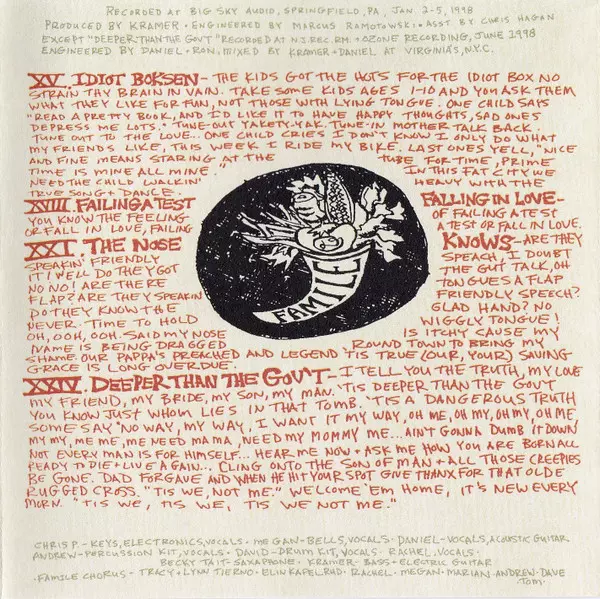 RECORDED AT BIG SKY AUDIO, SPRINGFIELD, PA, JAN. 2-5, 1998
PRODUCED BY KRAMER • ENGINEERED BY MARCUS RAMOTOWSKI • ASST BY CHRIS HAGAN.
EXCEPT "DEEPER THAN THE GOV'T" RECORDED AT N.J. REC. RM. + OZONE RECORDING, JUNE 1998
ENGINEERED BY DANIEL + RON, MIXED BY KRAMER + DANIEL AT VIRGINIA'S, N.Y.C.
XV. IDIOT BOKSEN – THE KIDS GOT THE HOTS FOR THE IDIOT BOX NO
STRAIN THY BRAIN IN VAIN. TAKE SOME KIDS AGES 1-10 AND YOU ASK THEM
WHAT THEY LIKE FOR FUN, NOT THOSE WITH LYING TONGUE. ONE CHILD SAYS
"READ A PRETTY BOOK, AND I'D LIKE IT TO HAVE HAPPY THOUGHTS, SAD ONES
DEPRESS ME LOTS." TUNE-OUT YAKETY-YAK. TUNE-IN MOTHER TALK BACK.
TUNE OUT TO THE LOVE. ONE CHILD CRIES I DON'T KNOW I ONLY DO WHAT
MY FRIENDS LIKE, THIS WEEK I RIDE MY BIKE. LAST ONES YELL, "NICE
AND FINE MEANS STARING AT THE TUBE FOR TIME, PRIME
TIME IS MINE ALL MINE." IN THIS FAT CITY WE
NEED THE CHILD WALKIN' HEAVY WITH THE
TRUE SONG + DANCE.
XVIII. FAILING A TEST FALLING IN LOVE –
YOU KNOW THE FEELING OF FAILING A TEST
OR FALL IN LOVE, FAILING A TEST OR FALL IN LOVE.
XXI. THE NOSE KNOWS – ARE THEY
SPEAKIN' FRIENDLY SPEACH, I DOUBT
IT! WELL DO THEY GOT THE GUT TALK, OH
NO NO! ARE THERE TONGUES A FLAP
FLAP? ARE THEY SPEAKIN FRIENDLY SPEECH?
DO THEY KNOW THE GLAD HAND? NO
NEVER. TIME TO HOLD WIGGLY TONGUE!
OH, OOH, OOH SAID MY NOSE IS ITCHY CAUSE MY
NAME IS BEING DRAGGED ROUND TOWN TO BRING MY
SHAME. OUR PAPPA'S PREACHED AND LEGEND 'TIS TRUE (OUR, YOUR) SAVING
GRACE IS LONG OVERDUE.
XXIV. DEEPER THAN THE GOV'T – I TELL YOU THE TRUTH, MY LOVE
MY FRIEND, MY BRIDE, MY SON, MY MAN. 'TIS DEEPER THAN THE GOVT
YOU KNOW JUST WHOM LIES IN THAT TOMB. 'TIS A DANGEROUS TRUTH
SOME SAY "NO WAY, MY WAY, I WANT IT MY WAY, OH ME, OH MY, OH MY, OH ME
MY MY, ME ME, ME NEED MAMA, NEED MY MOMMY ME... AIN'T GONNA DUMB IT DOWN
NOT EVERY MAN IS FOR HIMSELF... HEAR ME NOW + ASK ME HOW YOU ARE BORN ALL
READY TO DIE + LIVE AGAIN... CLING ONTO THE SON OF MAN + ALL THOSE CREEPIES
BE GONE. DAD FORGAVE AND WHEN HE HIT YOUR SPOT GIVE THANX FOR THAT OLDE
RUGGED CROSS. "TIS WE, NOT ME." WELCOME 'EM HOME, IT'S NEW EVERY
MORN. "TIS WE, TIS WE, TIS WE NOT ME."
FAMILE
CHRIS P. – KEYS, ELECTRONICS, VOCALS • MEGAN – BELLS, VOCALS • DANIEL – VOCALS, ACOUSTIC GUITAR
ANDREW – PERCUSSION KIT, VOCALS • DAVID – DRUM KIT, VOCALS • RACHEL, VOCALS •
BECKY TAIT – SAXAPHONE • KRAMER – BASS + ELECTRIC GUITAR
• FAMILE CHORUS – TRACY + LYNN TIERNO • ELIN KAPELRUD • RACHEL • MEGAN • MARIAN • ANDREW • DAVE
TOM •